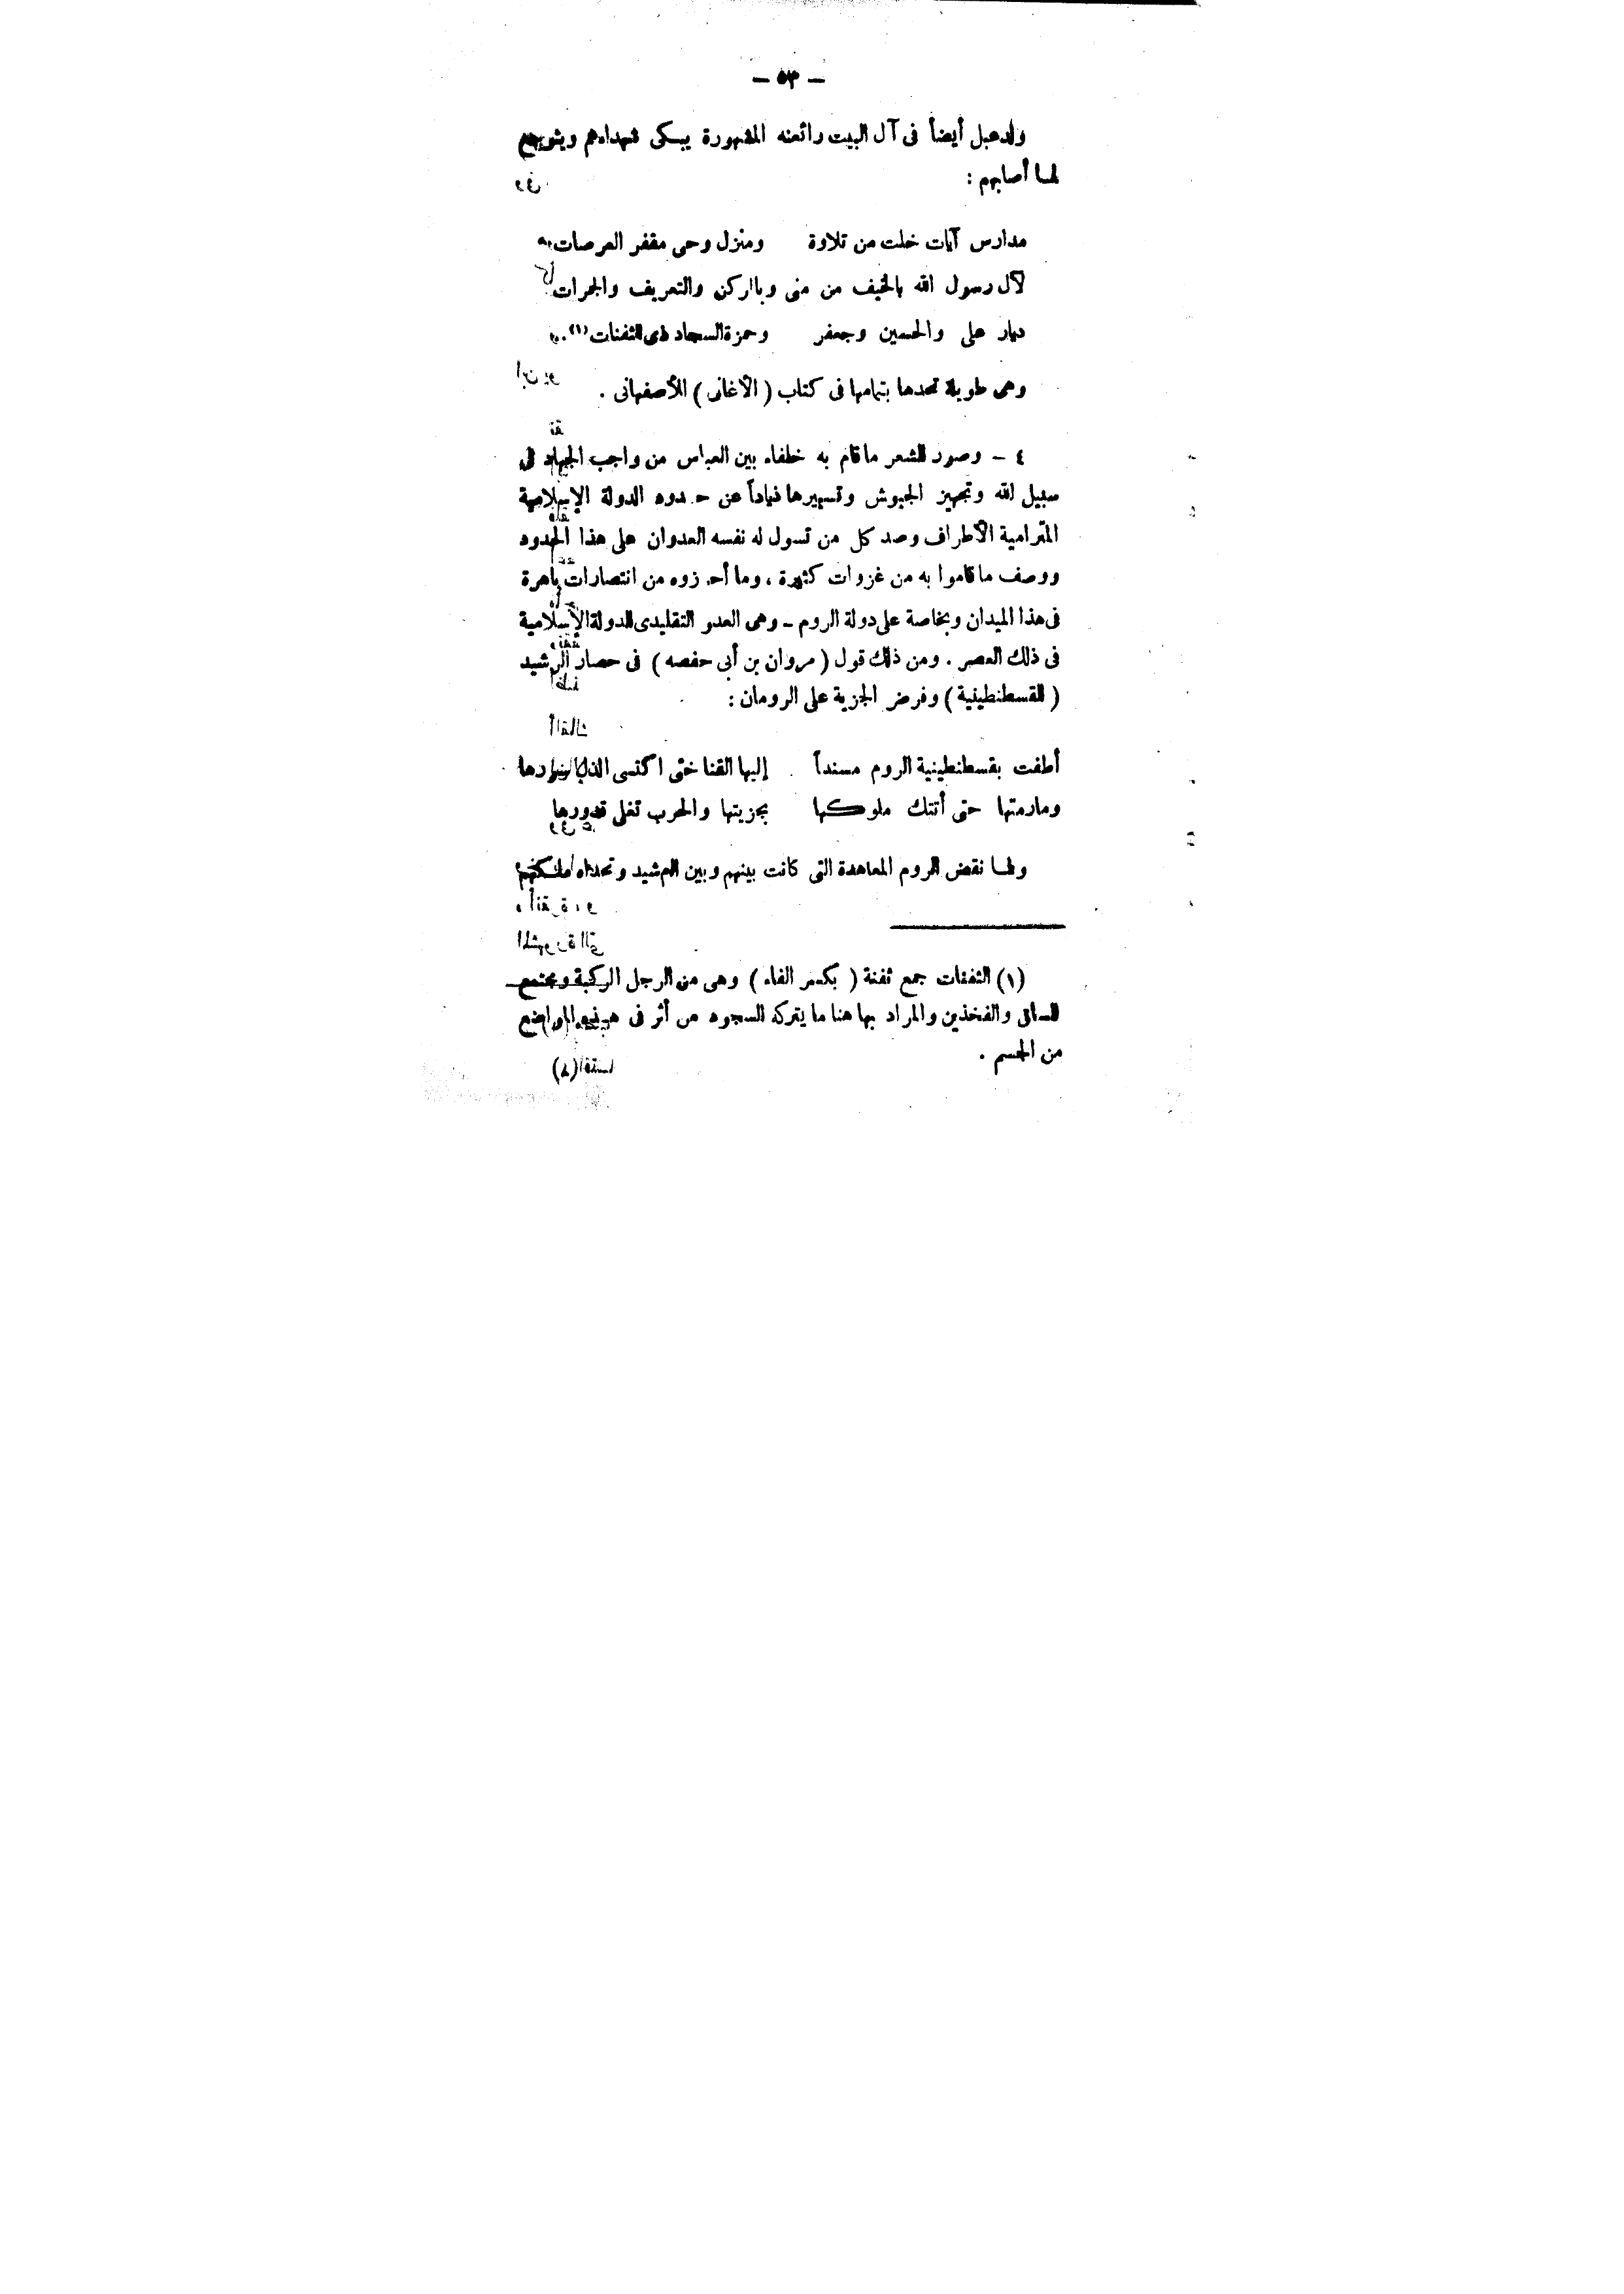 — ٥٣ —
ولدعبل أيضاً فى آل البيت رائعته المشهورة يبكى شهداءهم
لما أصابهم :
مدارس آيات خلت من تلاوة ومنزل وحى مقفر العرصات
لآل رسول الله بالخيف من منى وبالركن والتعريف والجمرات
ديار على والحسين وجعفر وحمزة السجاد ذى الثفنات (١)
وهى طويلة تجدها بتمامها فى كتاب ( الأغانى ) للأصفهانى .
٤ — وصور الشعر ما قام به خلفاء بين العباس من واجب الجهاد فى
سبيل الله وتجهيز الجيوش وتسييرها ذياداً عن حدود الدولة الإسلامية
المترامية الأطراف وصد كل من تسول له نفسه العدوان على هذا الحدود
ووصف ما قاموا به من غزوات كثيرة ، وما أحرزوه من انتصارات باهرة
فى هذا الميدان وبخاصة على دولة الروم — وهى العدو التقليدى للدولة الإسلامية
فى ذلك العصر . ومن ذلك قول ( مروان بن أبى حفصه ) فى حصار الرشيد
( القسطنطينية ) وفرض الجزية على الرومان :
أطفت بقسطنطينية الروم مسنداً إليها القنا حتى اكتسى الذل سورها
ومارمتها حتى أتتك ملوكها بجزيتها والحرب تغلى قدورها
ولما نقض الروم المعاهدة التى كانت بينهم وبين الرشيد وتحداه ملكهم
(١) الثفنات جمع ثفنة ( بكسر الفاء ) وهى من الرجل الركبة ومجتمع
الساق والفخذين والمراد بها هنا ما يتركه السجود من أثر فى هذه المواضع
من الجسم .